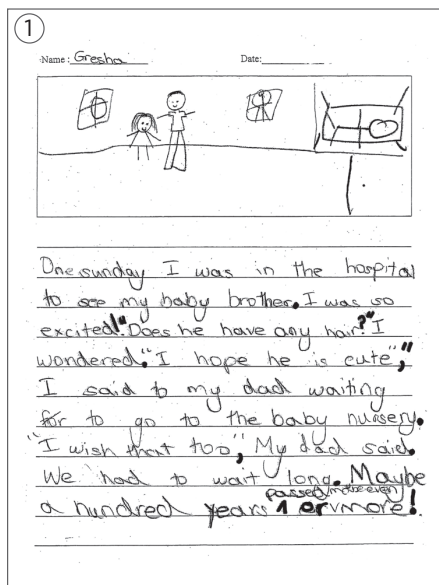 1
Name: Gresha Date:
One sunday I was in the hospital
to see my baby brother. I was so
excited!" Does he have any hair?" I
wondered. "I hope he is cute",
I said to my dad waiting
for to go to the baby nursery.
"I wish that too", My dad said.
We had to wait long. Maybe
passed maybe even
a hundred years 1 or more!